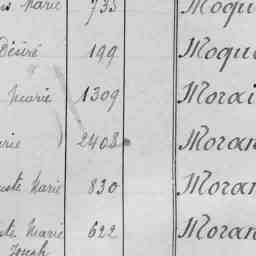 Marie 733 Moqu
Désiré 199 Moqu
Marie 1309 Morai
rie 2408 Moran
uste Marie 830 Moran
ste Marie 622 Moran
Joseph